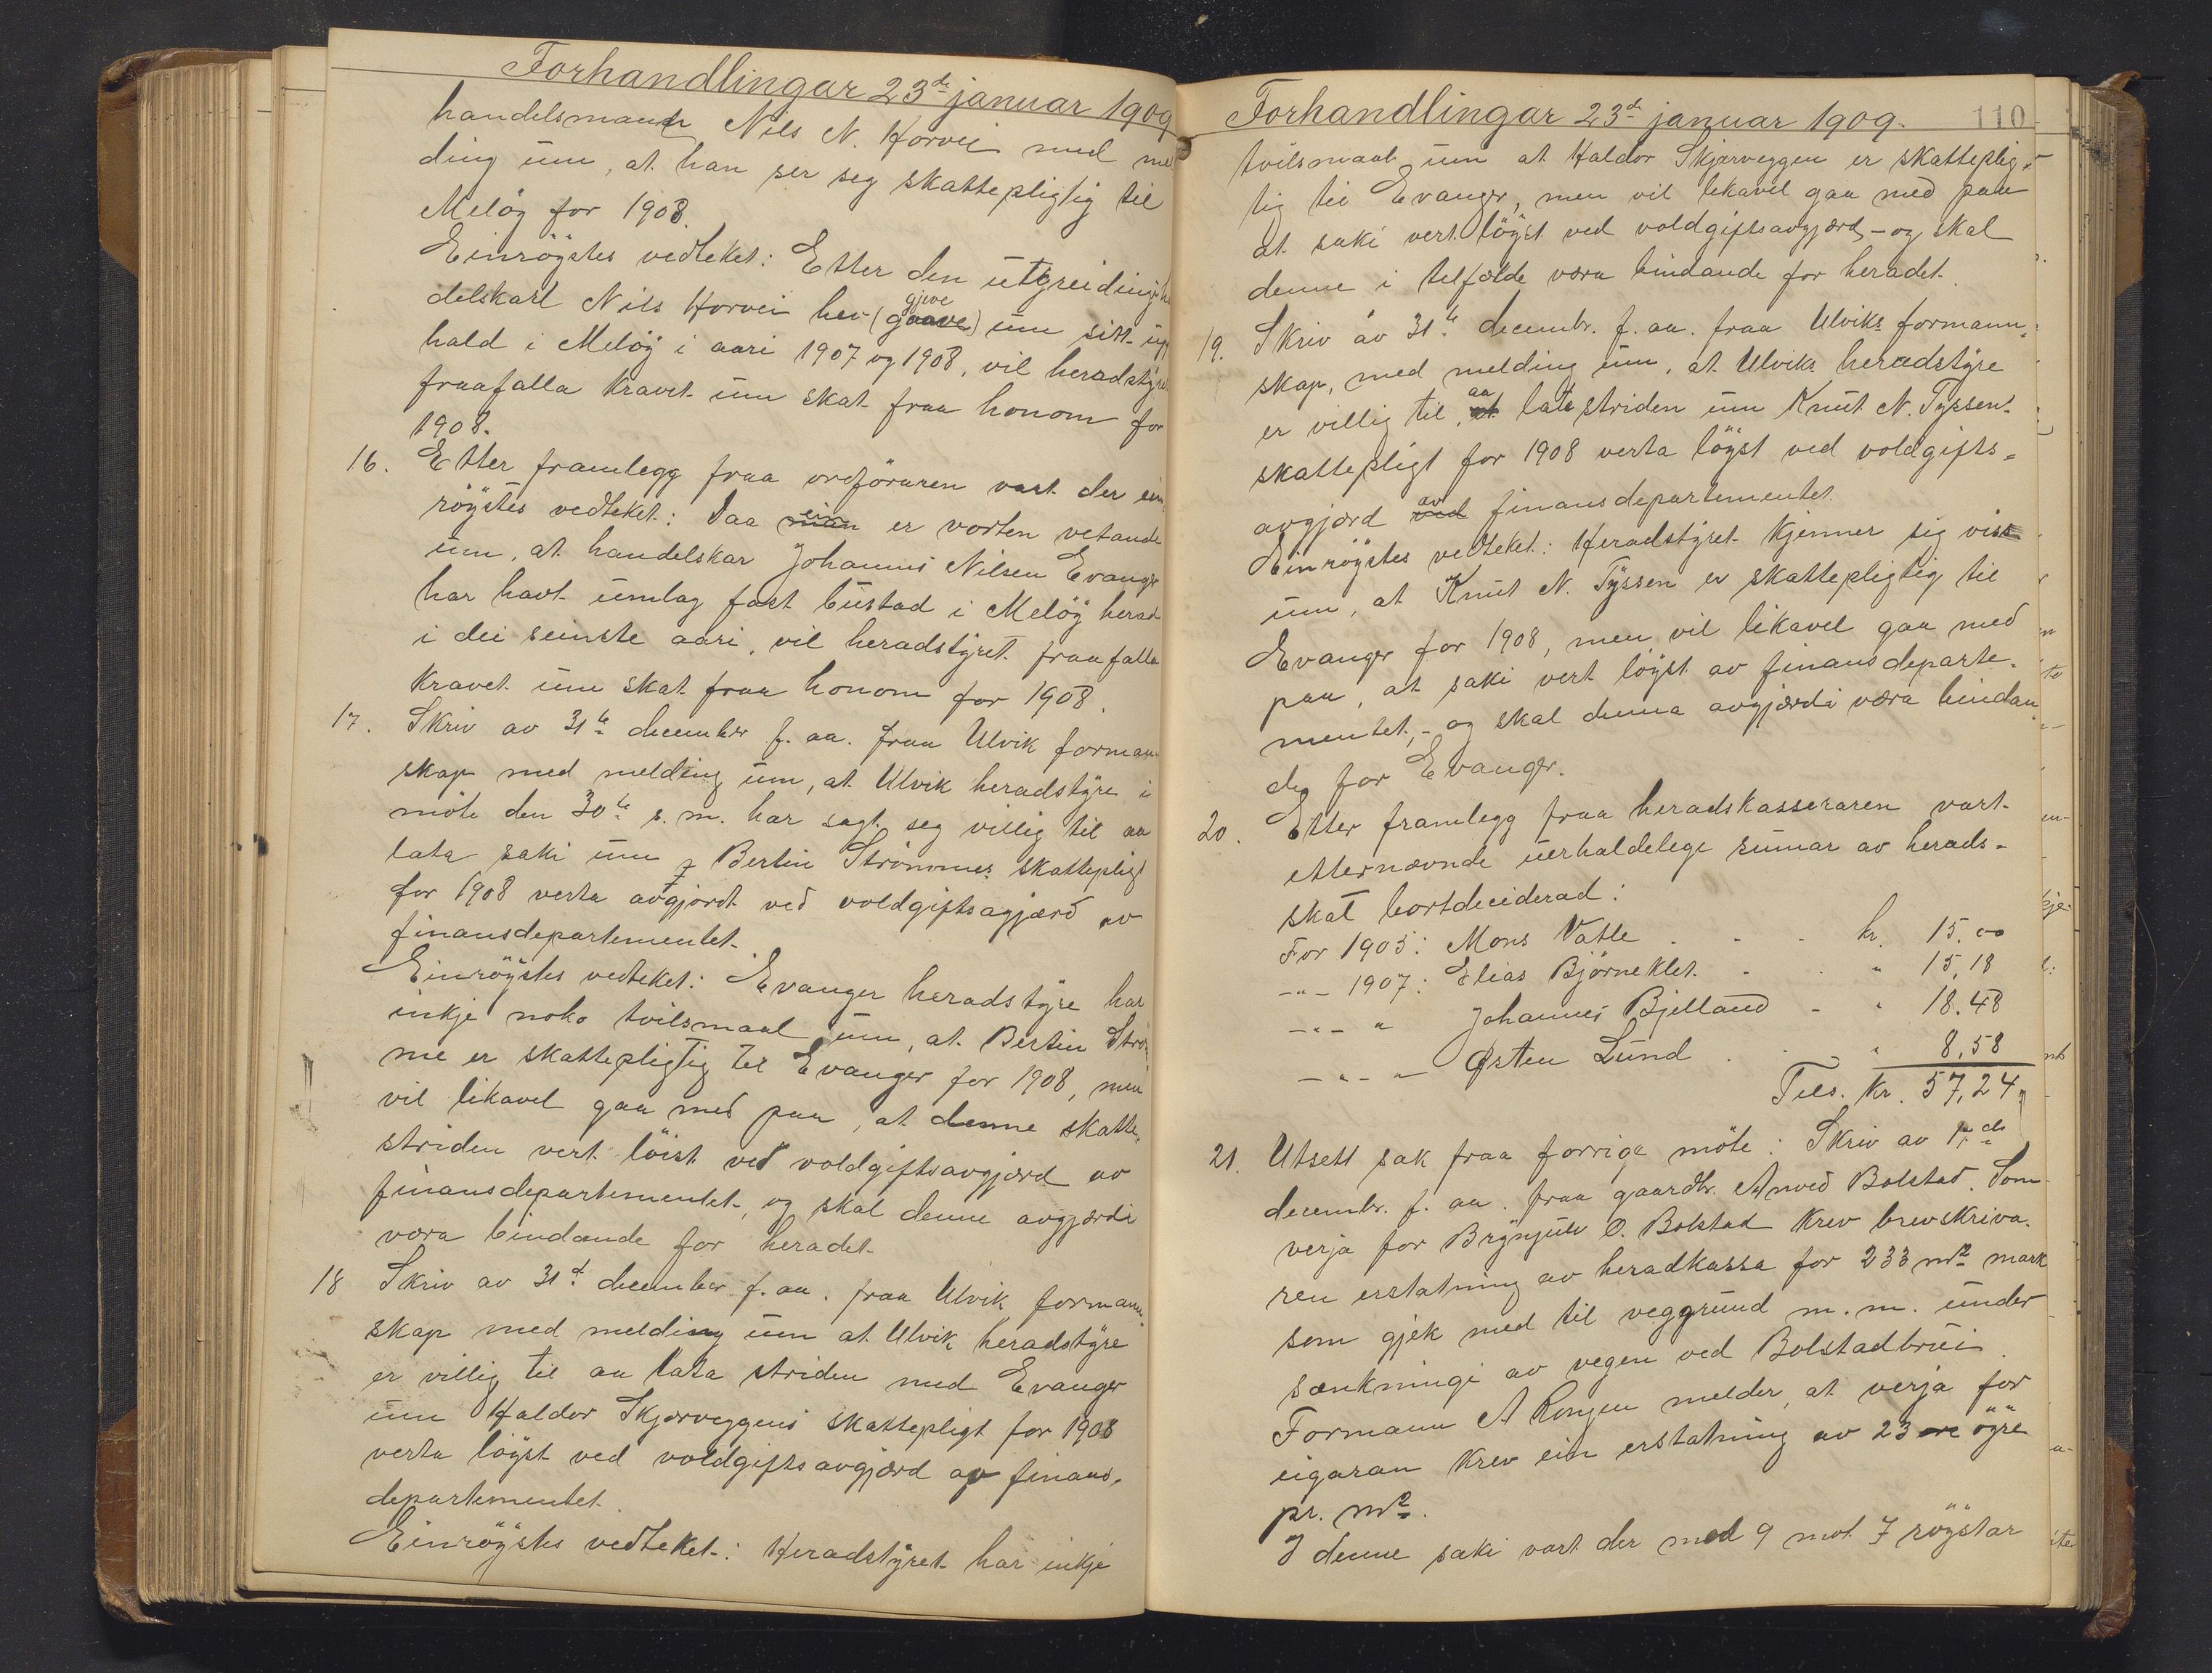 Forhandlingar 23de januar 1909
handelsmann Nils N. Horvei med mel
ding um, at han ser seg skattepligtig til
Melöy for 1908.
Einröystes vedteket: Etter den utgreiding h
delskarl Nils Horvei hev (gaave) gjeve um sitt up
hald i Melöy i aari 1907 og 1908, vil heradstyre
fraafalla kravet um skat fraa honom for
1908.
16. Etter framlegg fraa ordföraren vart der ein
röystes vedteket: Daa man ein er vorten vetande
um, at handelskar Johannes Nilsen Evanger
har havt umlag fast bustad i Melöy herad
i dei seinste aari, vil heradstyret fraafalla
kravet um skat fraa honom for 1908.
17. Skriv av 31te december f. aa. fraa Ulvik forman
skap med melding um, at Ulvik heradstyre i
möte den 30te s. m. har sagt seg villig til aa
lata saki um Bertin Strömmes skatteplig
for 1908 verta avgjordt ved voldgiftsagjærd av
finansdepartementet.
Einröystes vedteket: Evanger heradstyre har
inkje noko tvilsmaal um, at Bertin Strö
me er skattepligtig til Evanger for 1908, men
vil likavel gaa med paa, at denne skatte-
striden vert löist ved voldgiftsavgjærd av
finansdepartementet, og skal denne avgjærdi
vora bindande for heradet.
18 Skriv av 31te december f. aa. fraa Ulvik formann-
skap med melding um at Ulvik heradstyre
er villig til aa lata striden med Evanger
um Haldor Skjærveggens skattepligt for 1908
verta löyst ved voldgiftsavgjærd av finans-
departementet.
Einröystes vedteket: Heradstyret har inkje
Forhandlingar 23de januar 1909. 110
tvilsmaal um at Haldor Skjærveggen er skatteplig-
tig til Evanger, men vil likavel gaa med paa
at saki vert löyst ved voldgiftsavgjærd, - og skal
denne i tilfælde vora bindande for heradet.
19. Skriv av 31te decembr. f. aa. fraa Ulviks formann-
skap, med melding um, at Ulviks heradstyre
er villig til, at aa lata striden um Knut N. Tyssen
skattepligt for 1908 verta löyst ved voldgifts-
avgjærd ved av finansdepartementet.
Einröystes vedteket: Heradstyret kjenner sig viss
um, at Knut N. Tyssen er skattepligtig til
Evanger for 1908, men vil likavel gaa med
paa, at saki vert löyst av finansdeparte-
mentet, - og skal denna avgjærdi væra bindan
de for Evanger.
20. Etter framlegg fraa heradskasseraren vart
etternævnde uerhaldelege sumar av herads-
skat bortdeciderad:
For 1905: Mons Vatle . - - kr. 15.00
-"- 1907: Elias Björneklet. - . " 15,18
-"- " Johannes Bjelland - " 18.48
-"- " Østen Lund . . - " 8,58
Tils. kr. 57,24
21. Utsett sak fraa forrige möte: Skriv av
decembr. f. aa. fraa gaardbr. Anved Bolstad. Som
verja for Brynjulv O. Bolstad krev brevskriva-
ren erstatning av heradkassa for 233 m2 mark
som gjek med til veggrund m. m. under
sænkningi av vegen ved Bolstadbrui.
Formann A Rongen melder, at verja for
eigaran krev ein erstatning av 23 öyre
pr. m2.
I denne saki vart der med 9 mot 7 röystar